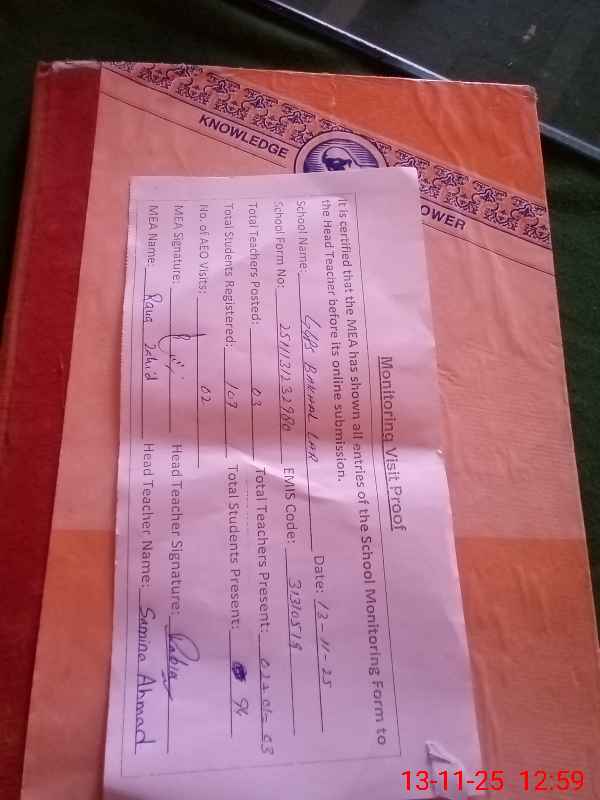 KNOWLEDGE
OWER
Monitoring Visit Proof
It is certified that the MEA has shown all entries of the School Monitoring Form to
the Head Teacher before its online submission.
School Name: GGPS BAKHAL LAR Date: 13-11-25
School Form No: 2511131232980 EMIS Code: 31310519
Total Teachers Posted: 03 Total Teachers Present: 02+01= 03
Total Students Registered: 109 Total Students Present: 96
No. of AEO Visits: 02
MEA Signature: Head Teacher Signature: Rabia
MEA Name: Rana Zahid Head Teacher Name: Samina Ahmad
13-11-25 12:59